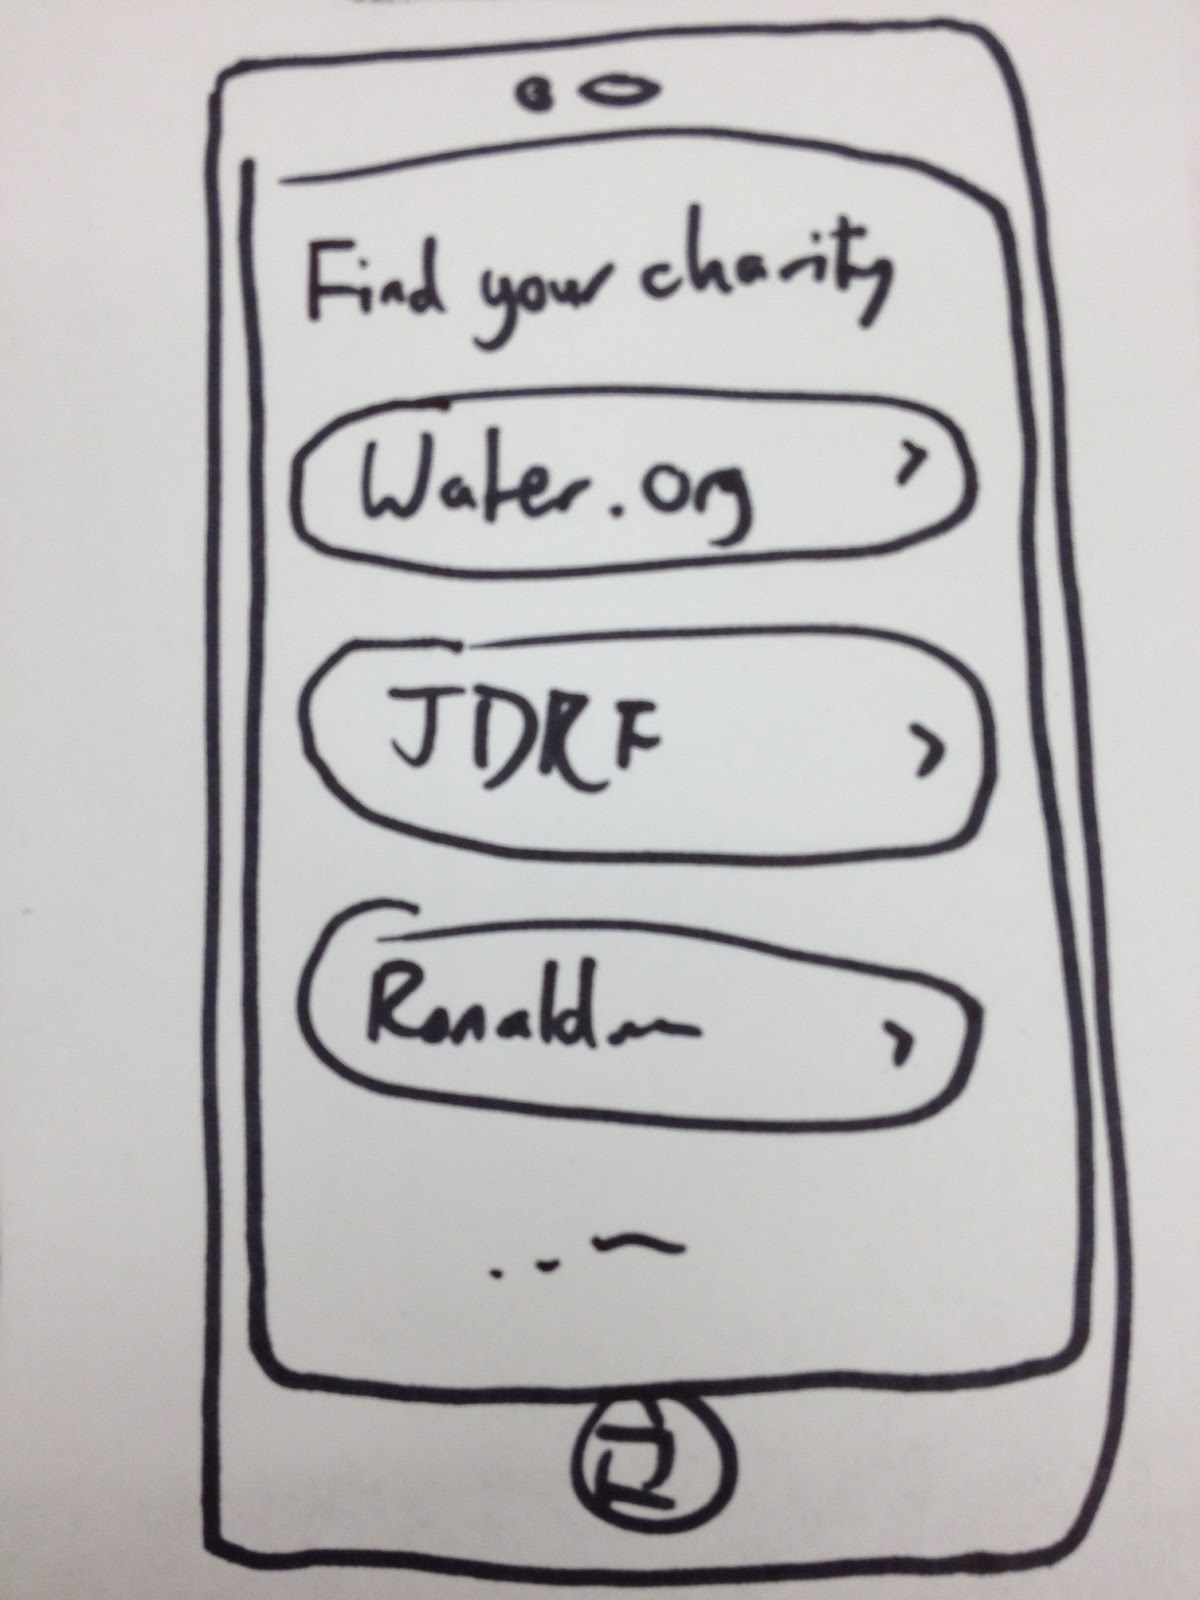 Find your charity
Water.org
JDRF
Ronald